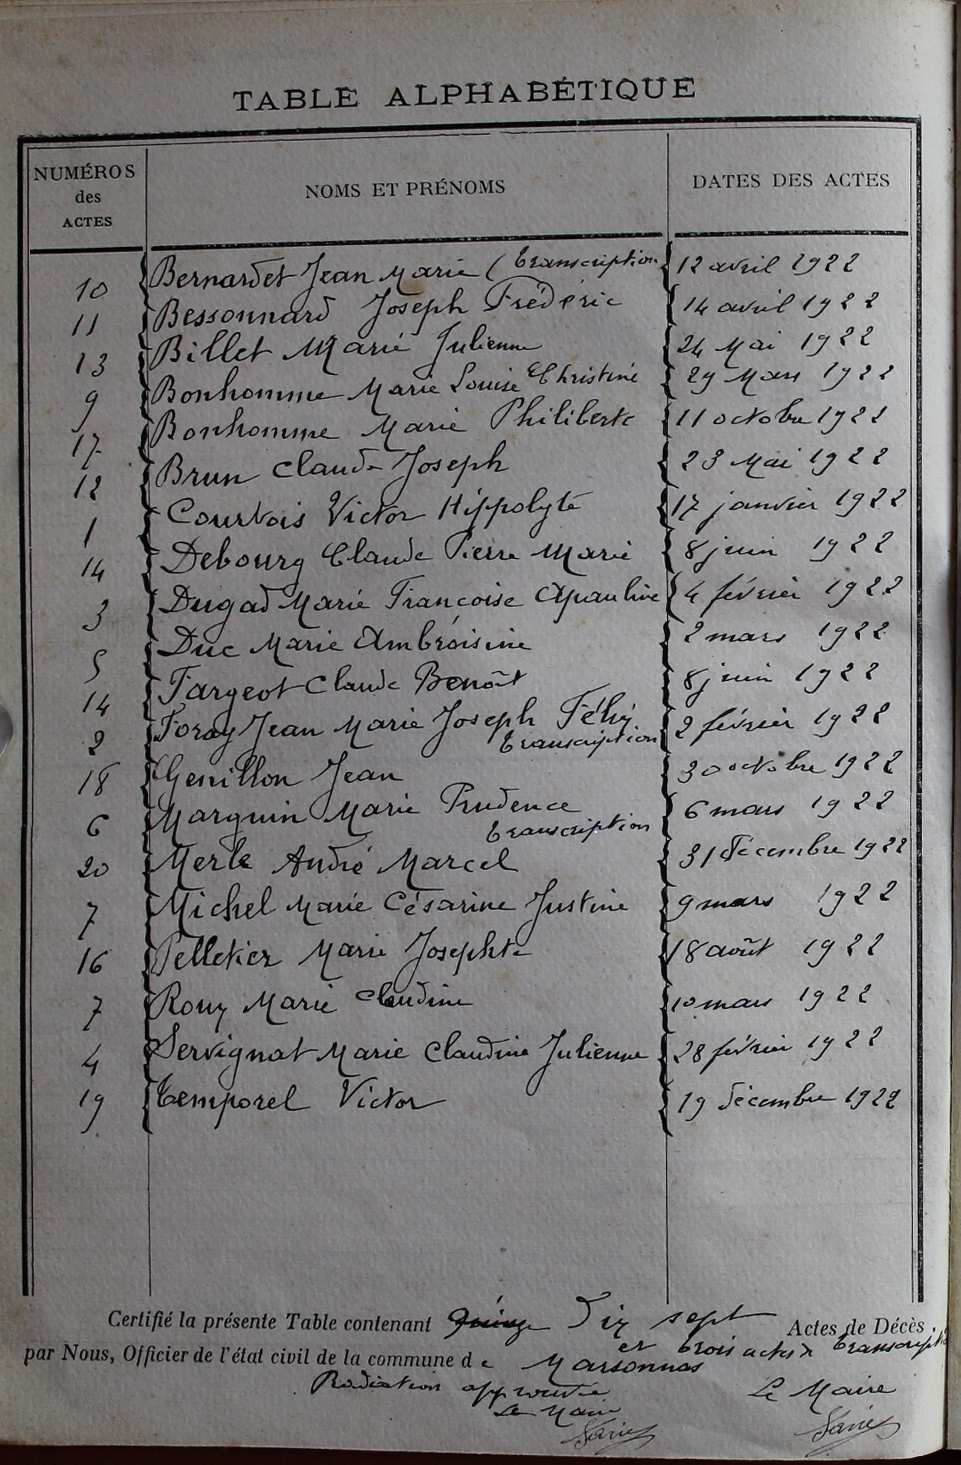 TABLE ALPHABÉTIQUE
NUMÉROS des ACTES NOMS ET PRÉNOMS DATES DES ACTES
10 Bernardet Jean Marie (Transcription 12 avril 1922
11 Bessonnard Joseph Frédéric 14 avril 1922
13 Billet Marie Julienne 24 Mai 1922
9 Bonhomme Marie Louise Christine 29 Mars 1922
17 Bonhomme Marie Philiberte 11 octobre 1922
12 Brun Claude Joseph 23 Mai 1922
1 Courtois Victor Hippolyte 17 janvier 1922
14 Debourg Claude Pierre Marie 8 juin 1922
3 Dugad Marie Françoise 4 février 1922
5 Duc Marie Ambroisine 2 mars 1922
14 Fargeot Claude Benoît 8 juin 1922
2 Foray Jean Marie Joseph 2 février 1922
Transcription
18 Genillon Jean 30 octobre 1922
6 Marguin Marie Prudence 6 mars 1922
Transcription
20 Merle André Marcel 31 décembre 1922
7 Michel Marie Césarine Justine 9 mars 1922
16 Pelletier Marie Josephte 18 août 1922
7 Rouy Marie Claudine 10 mars 1922
4 Servignat Marie Claudine Julienne 28 février 1922
19 Temporel Victor 19 décembre 1922
Certifié la présente Table contenant quinze Dix sept Actes de Décès
et trois actes de transcription
par Nous, Officier de l'état civil de la commune de Marsonnas
Radiation approuvée Le Maire
Le Maire